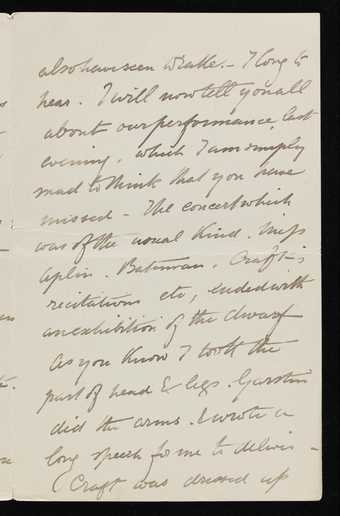 also have seen Wattle. – I long to
hear. I will now tell you all
about our performance last
evening, which I am simply
mad to think that you have
missed – The concert which
was of the usual kind. Miss
Aplin. Bateman. Craft's
recitations etc, ended with
an exhibition of the dwarf
As you know I took the
part of head & legs. Garstin
did the arms. I wrote a
long speech for me to deliver –
(Craft was dressed up